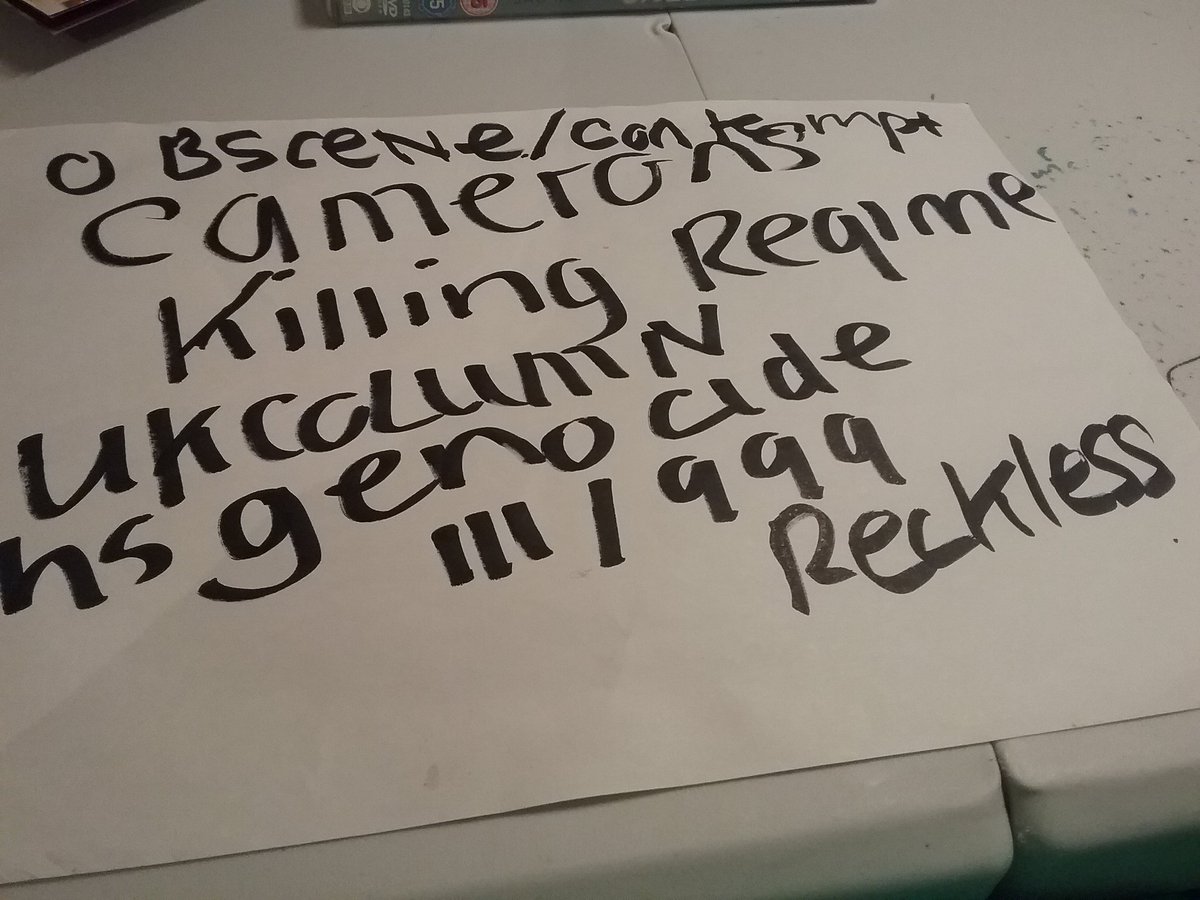 OBSCENE/contempt
Camerons
Killing Regime
UKcolumN
hs genocide
111/999
Reckless